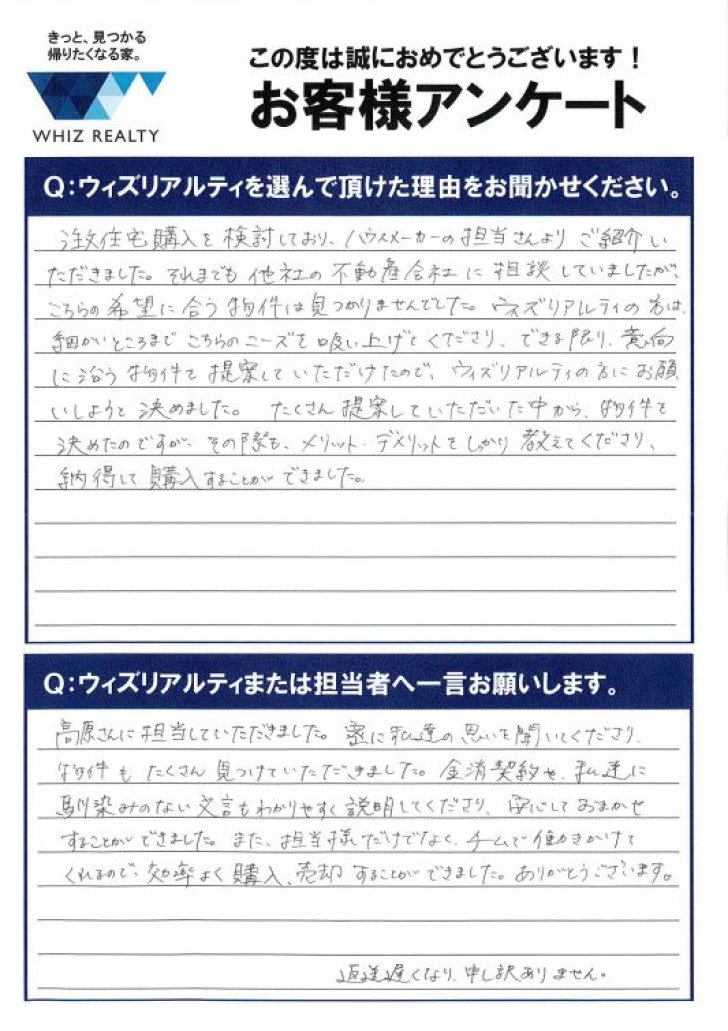 きっと、見つかる
帰りたくなる家。
WHIZ REALTY
この度は誠におめでとうございます！
お客様アンケート
Q：ウィズリアルティを選んで頂けた理由をお聞かせください。
注文住宅購入を検討しており、ハウスメーカーの担当さんよりご紹介い
ただきました。それまでも他社の不動産会社に相談していましたが、
こちらの希望に合う物件は見つかりませんでした。ウィズリアルティの方は、
細かいところまでこちらのニーズを吸い上げてくださり、できる限り、意向
に沿う物件を提案していただけたので、ウィズリアルティの方にお願
いしようと決めました。たくさん提案していただいた中から、物件を
決めたのですが、その際も、メリット・デメリットをしっかり教えてくださり、
納得して購入することができました。
Q：ウィズリアルティまたは担当者へ一言お願いします。
高原さんに担当していただきました。密に私達の思いを聞いてくださり、
物件もたくさん見つけていただきました。金消契約や、私達に
馴染みのない文言もわかりやすく説明してくださり、安心しておまかせ
することができました。また、担当様だけでなく、チームで働きかけて
くれるので、効率よく購入、売却することができました。ありがとうございます。
返送遅くなり、申し訳ありません。